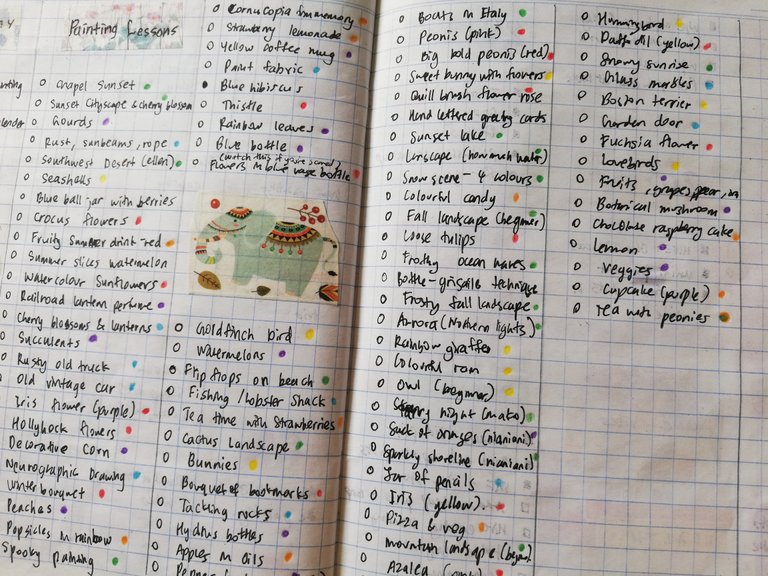 Painting Lessons
Chapel sunset
Sunset Cityscape & cherry blossom
Gourds
Rust, sunbeams, rope
Southwest Desert (ellen)
Seashells
Blue ball jar with berries
Crocus flowers
Fruity Summer drink - red
Summer slices watermelon
Watercolour Sunflowers
Railroad lantern perfume
Cherry blossoms & lanterns
Succulents
Rusty old truck
Old vintage car
Iris flower (purple)
Hollyhock flowers
Decorative Corn
Neurographic Drawing
Winter bouquet
Peaches
Popsicles in rainbow
Spooky painting
Cornucopia from memory
Strawberry lemonade
Yellow coffee mug
Paint fabric
Blue hibiscus
Thistle
Rainbow leaves
Blue bottle
(watch this if you're scared)
Flowers in blue vase bottle
Goldfinch bird
Watermelons
Flip flops on beach
Fishing / lobster shack
Tea time with strawberries
Cactus Landscape
Bunnies
Bouquet of bookmarks
Tacking rocks
Hydrus bottles
Apples in oils
Boats in Italy
Peonis (pink)
Big bold peonis (red)
Sweet bunny with flowers
Quill brush flower rose
Hand lettered greeting cards
Sunset lake
Lanscape (how much water)
Snow scene - 4 colours
Colourful candy
Fall landscape (beginner)
Loose tulips
Frothy ocean waves
Bottle - grisaille technique
Frosty fall landscape
Aurora (Northern lights)
Rainbow giraffe
Colourful ram
Owl (beginner)
Starry night (mako)
Sack of oranges (nianiani)
Sparkly shoreline (nianiani)
Jar of pencils
Iris (yellow)
Pizza & veg
mountain landscape (begin)
Azalea
Hummingbird
Daffodil (yellow)
Snowy sunrise
Glass marbles
Boston terrier
Garden door
Fuchsia flower
Lovebirds
Fruits, grapes, pear,
Botanical mushroom
Chocolate raspberry cake
Lemon
Veggies
Cupcake (purple)
Tea with peonies